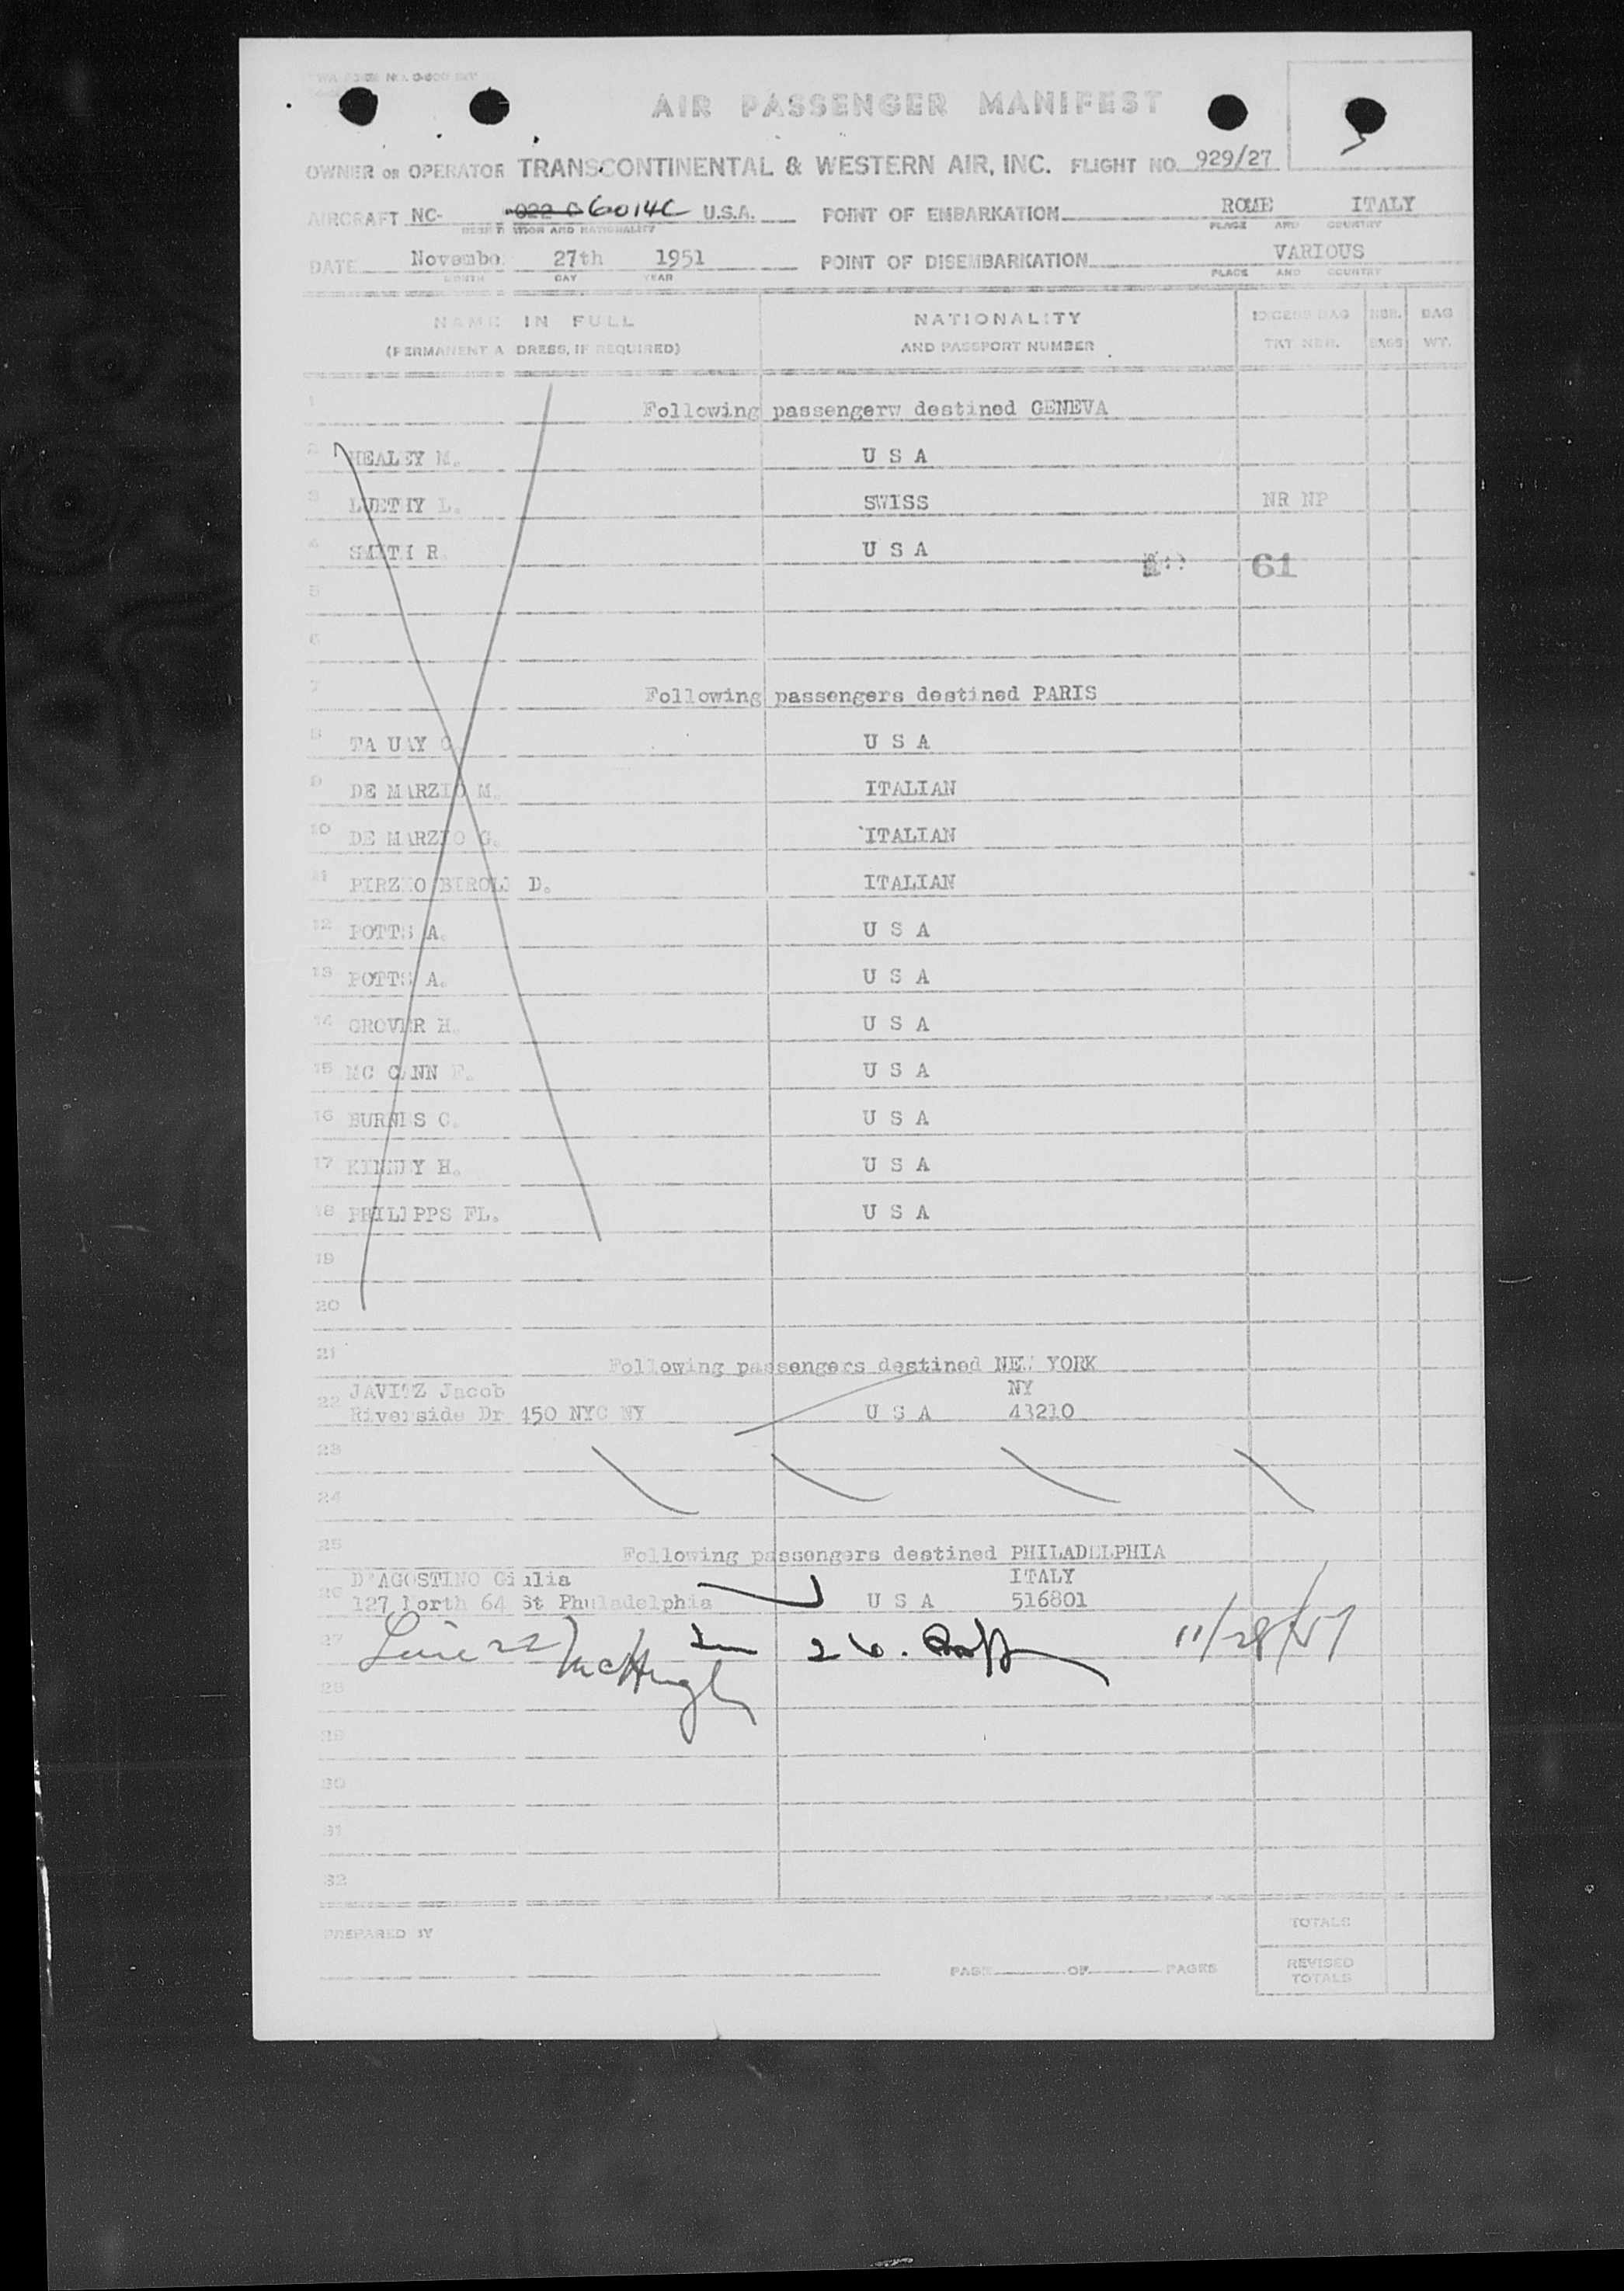 AIR PASSENGER MANIFEST
OWNER OR OPERATOR TRANSCONTINENTAL & WESTERN AIR, INC. FLIGHT NO. 929/27
AIRCRAFT NC- 6014C U.S.A. POINT OF EMBARKATION ROME ITALY
AND NATIONALITY PLACE AND COUNTRY
DATE Novembe 27th 1951 POINT OF DISEMBARKATION VARIOUS
MONTH DAY YEAR PLACE AND COUNTRY
NAME IN FULL NATIONALITY EXCESS BAG NBR. BAG
(PERMANENT A DRESS, IF REQUIRED) AND PASSPORT NUMBER TKT NBR. BAGS WT.
1 Following passengerw destined GENEVA
2 HEALEY M. U S A
3 LUETHY L. SWISS NR NP
4 SMITH R. U S A
61
5
6
7 Following passengers destined PARIS
8 U S A
9 DE MARZIO M. ITALIAN
10 DE MARZIO G. ITALIAN
11 PIRZIO BIROLI D. ITALIAN
12 POTTS A. U S A
13 POTTS A. U S A
14 GROVER H. U S A
15 MC CANN F. U S A
16 BURNES C. U S A
17 H. U S A
18 PHILIPPS FL. U S A
19
20
21 Following passengers destined NEW YORK
JAVITZ Jacob NY
22 Riverside Dr 450 NYC NY U S A 43210
23
24
25 Following passengers destined PHILADELPHIA
D'AGOSTINO Giulia ITALY
26 127 North 64 St Phuladelphia U S A 516801
27 Line 22 McHugh 26. 11/28/51
28
29
30
31
32
TOTALS
PREPARED BY
PAGE OF PAGES REVISED
TOTALS